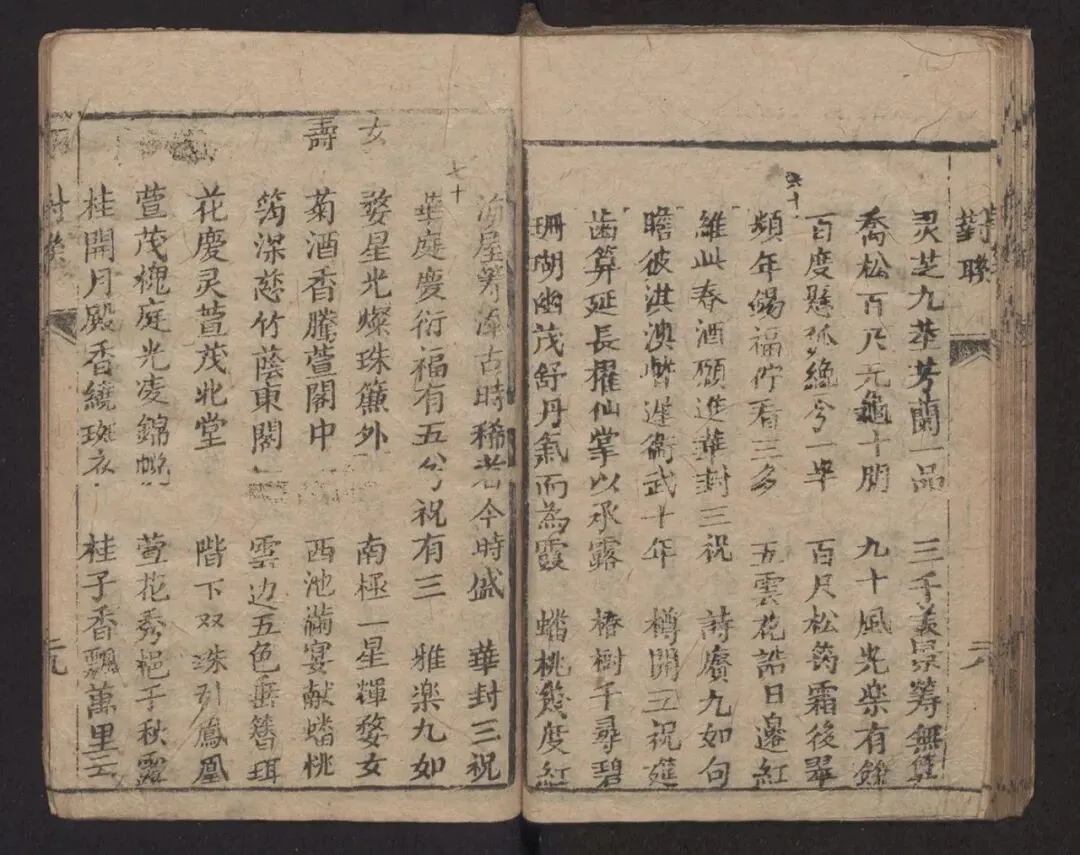 對聯
灵芝九莖芳蘭一品 三千美景筹無𨾏
喬松百尺元龜十朋 九十風光楽有餘
百度懸弧絶今一畢 百尺松筠霜後翠
六十
頻年錫福佇看三多 五雲花誥日邊紅
維此春酒願進華封三祝 詩賡九如句
瞻彼淇澳暫遲衞武十年 樽開三祝筵
齒算延長擢仙掌以承露 椿樹千尋碧
珊瑚幽茂舒丹氣而為霞 蟠桃幾度紅
二八
七十
海屋筹添古時稀者今時盛 華封三祝
華庭慶衍福有五兮祝有三 雅楽九如
女壽
婺星光燦珠簾外 南極一星輝婺女
菊酒香騰萱閣中 西池滿宴献蟠桃
筠深慈竹蔭東閣 雲边五色垂簪珥
花慶灵萱茂北堂 階下双珠引鳳凰
萱茂槐庭光凌錦 萱花秀挹千秋露
桂開月殿香繞斑衣 桂子香飄萬里云
對聯
二九